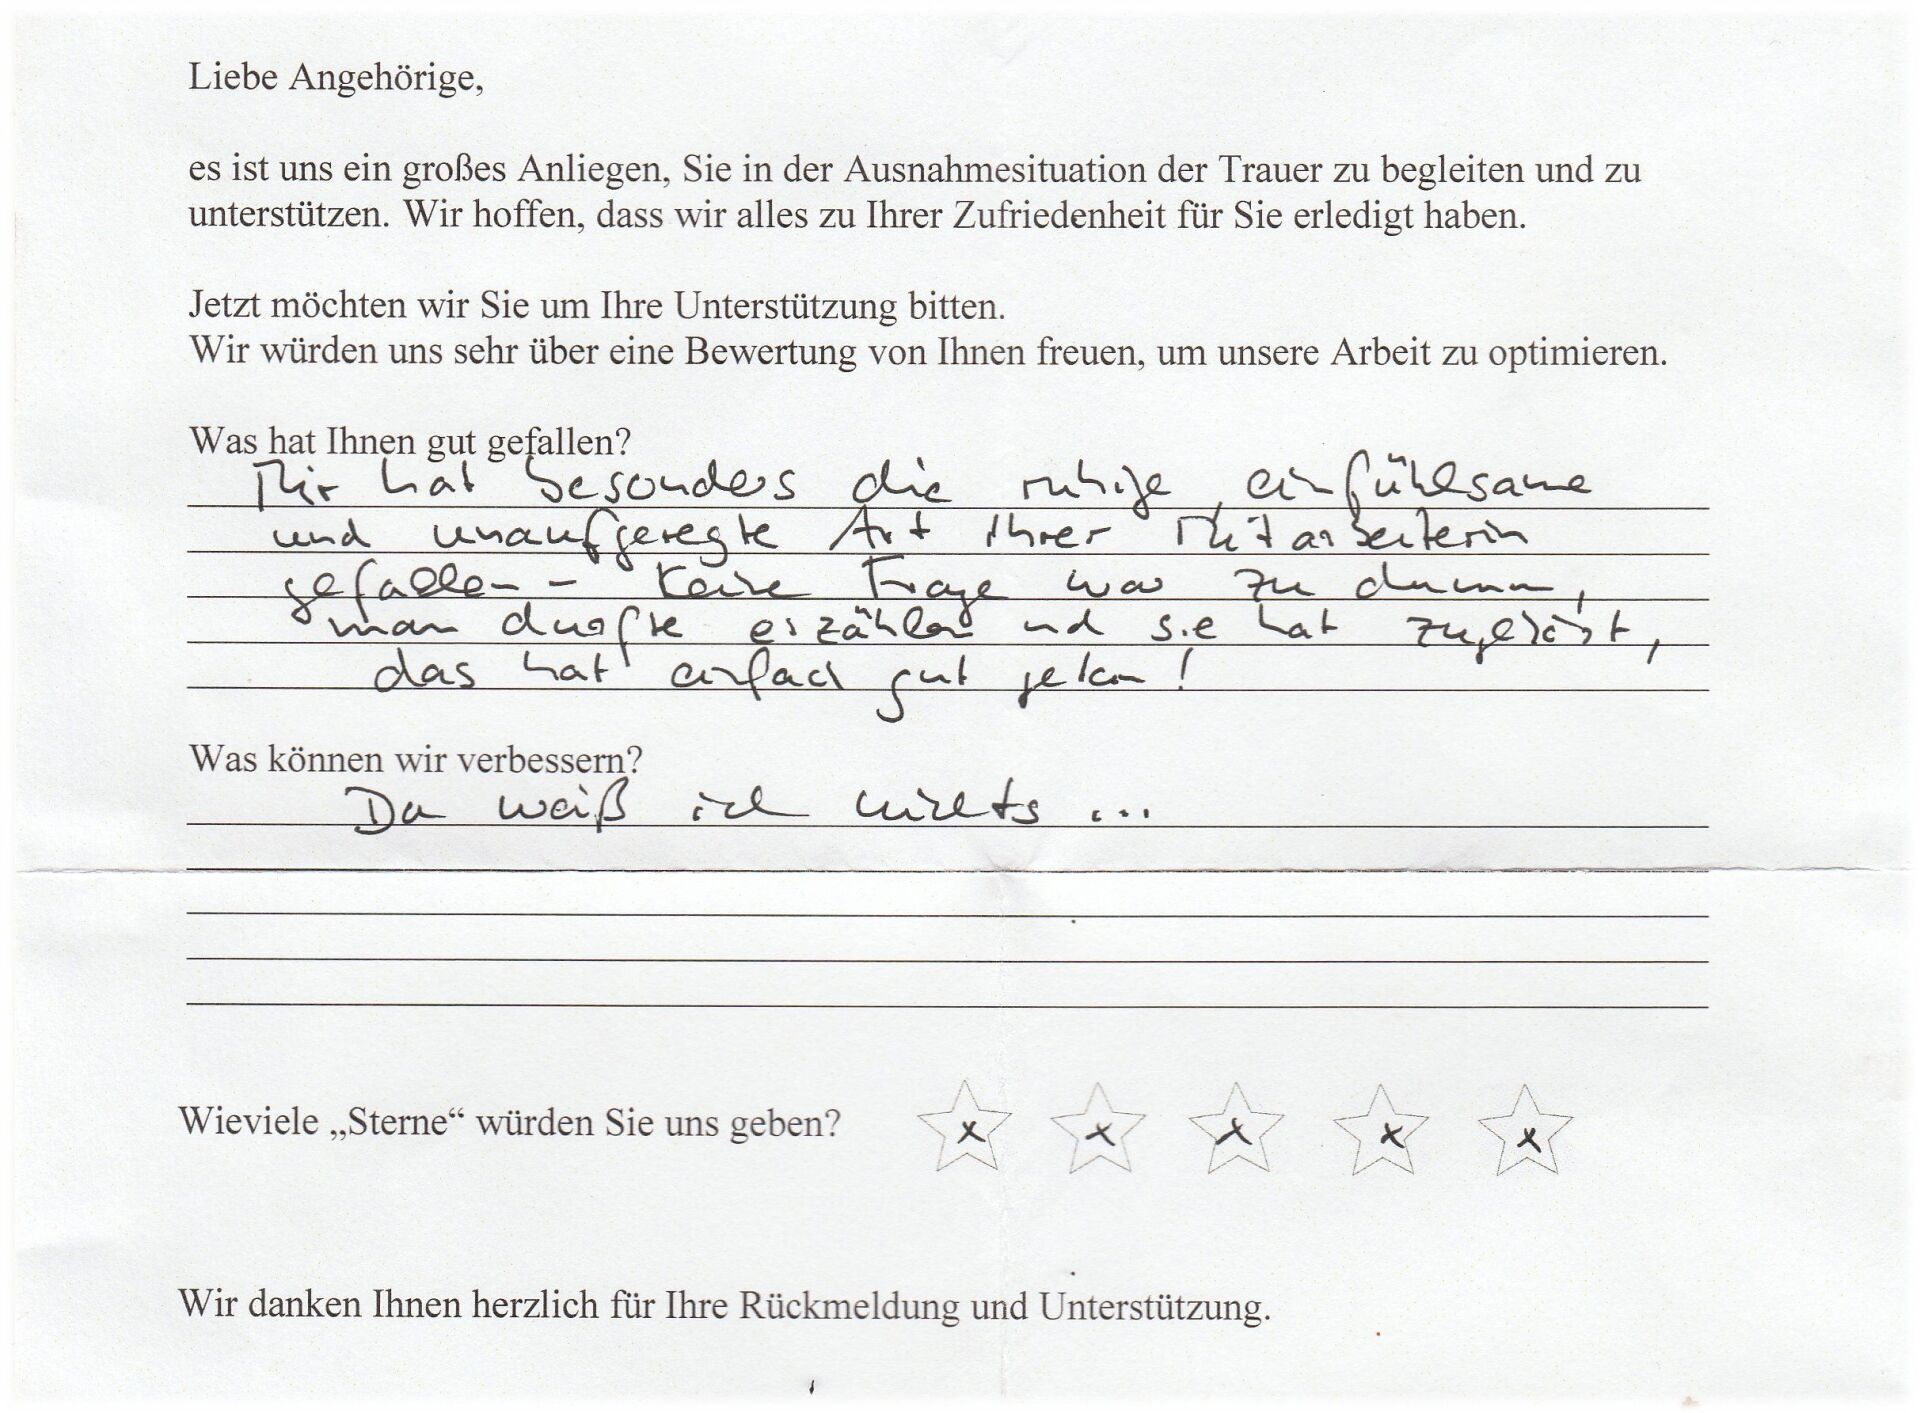 Liebe Angehörige,
es ist uns ein großes Anliegen, Sie in der Ausnahmesituation der Trauer zu begleiten und zu
unterstützen. Wir hoffen, dass wir alles zu Ihrer Zufriedenheit für Sie erledigt haben.
Jetzt möchten wir Sie um Ihre Unterstützung bitten.
Wir würden uns sehr über eine Bewertung von Ihnen freuen, um unsere Arbeit zu optimieren.
Was hat Ihnen gut gefallen?
Mir hat besonders die ruhige, einfühlsame
und unaufgeregte Art Ihrer Mitarbeiterin
gefallen - keine Frage war zu dumm,
man durfte erzählen und sie hat zugehört,
das hat einfach gut getan!
Was können wir verbessern?
Da weiß ich nichts ...
Wieviele „Sterne“ würden Sie uns geben?
x x x x x
Wir danken Ihnen herzlich für Ihre Rückmeldung und Unterstützung.